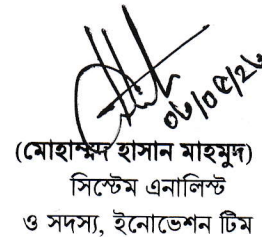 ০৬/০৫/২৬
(মোহাম্মদ হাসান মাহমুদ)
সিস্টেম এনালিস্ট
ও সদস্য, ইনোভেশন টিম